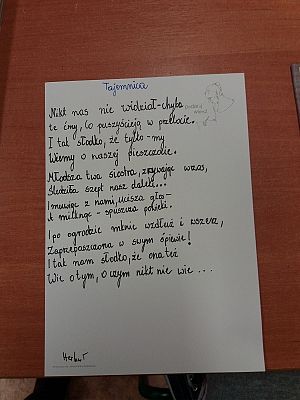 Tajemnica
Nikt nas nie widział - chyba
te ćmy, co puszyścieją w przelocie.
I tak słodko, że tylko - my
Wiemy o naszej pieszczocie.
Młodsza twa siostra, zrywając wrzos,
Śledziła szept nasz daleki...
I mówiąc z nami, ucisza głos -
A milknąc - spuszcza powieki.
I po ogrodzie mknie wzdłuż i wszerz,
Zaprzepaszczona w swym śpiewie!
I tak nam słodko, że ona też
Wie o tym, o czym nikt nie wie ...